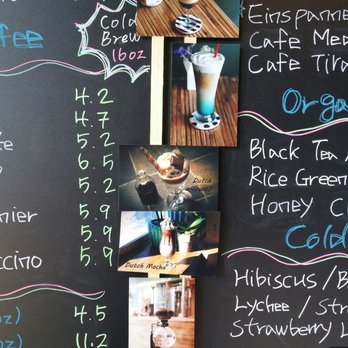 ffee
Cold
Brew
16oz
4.2
4.7
5.2
6.5
5.2
5.9
nier
5.9
ccino
5.9
oz)
4.5
oz)
11.2
Dutch
Dutch Mocha
Einspanne
Cafe Me
Cafe Tira
Orga
Black Tea
Rice Green
Honey C
Cold
Hibiscus/B
Lychee / Str
Strawberry L